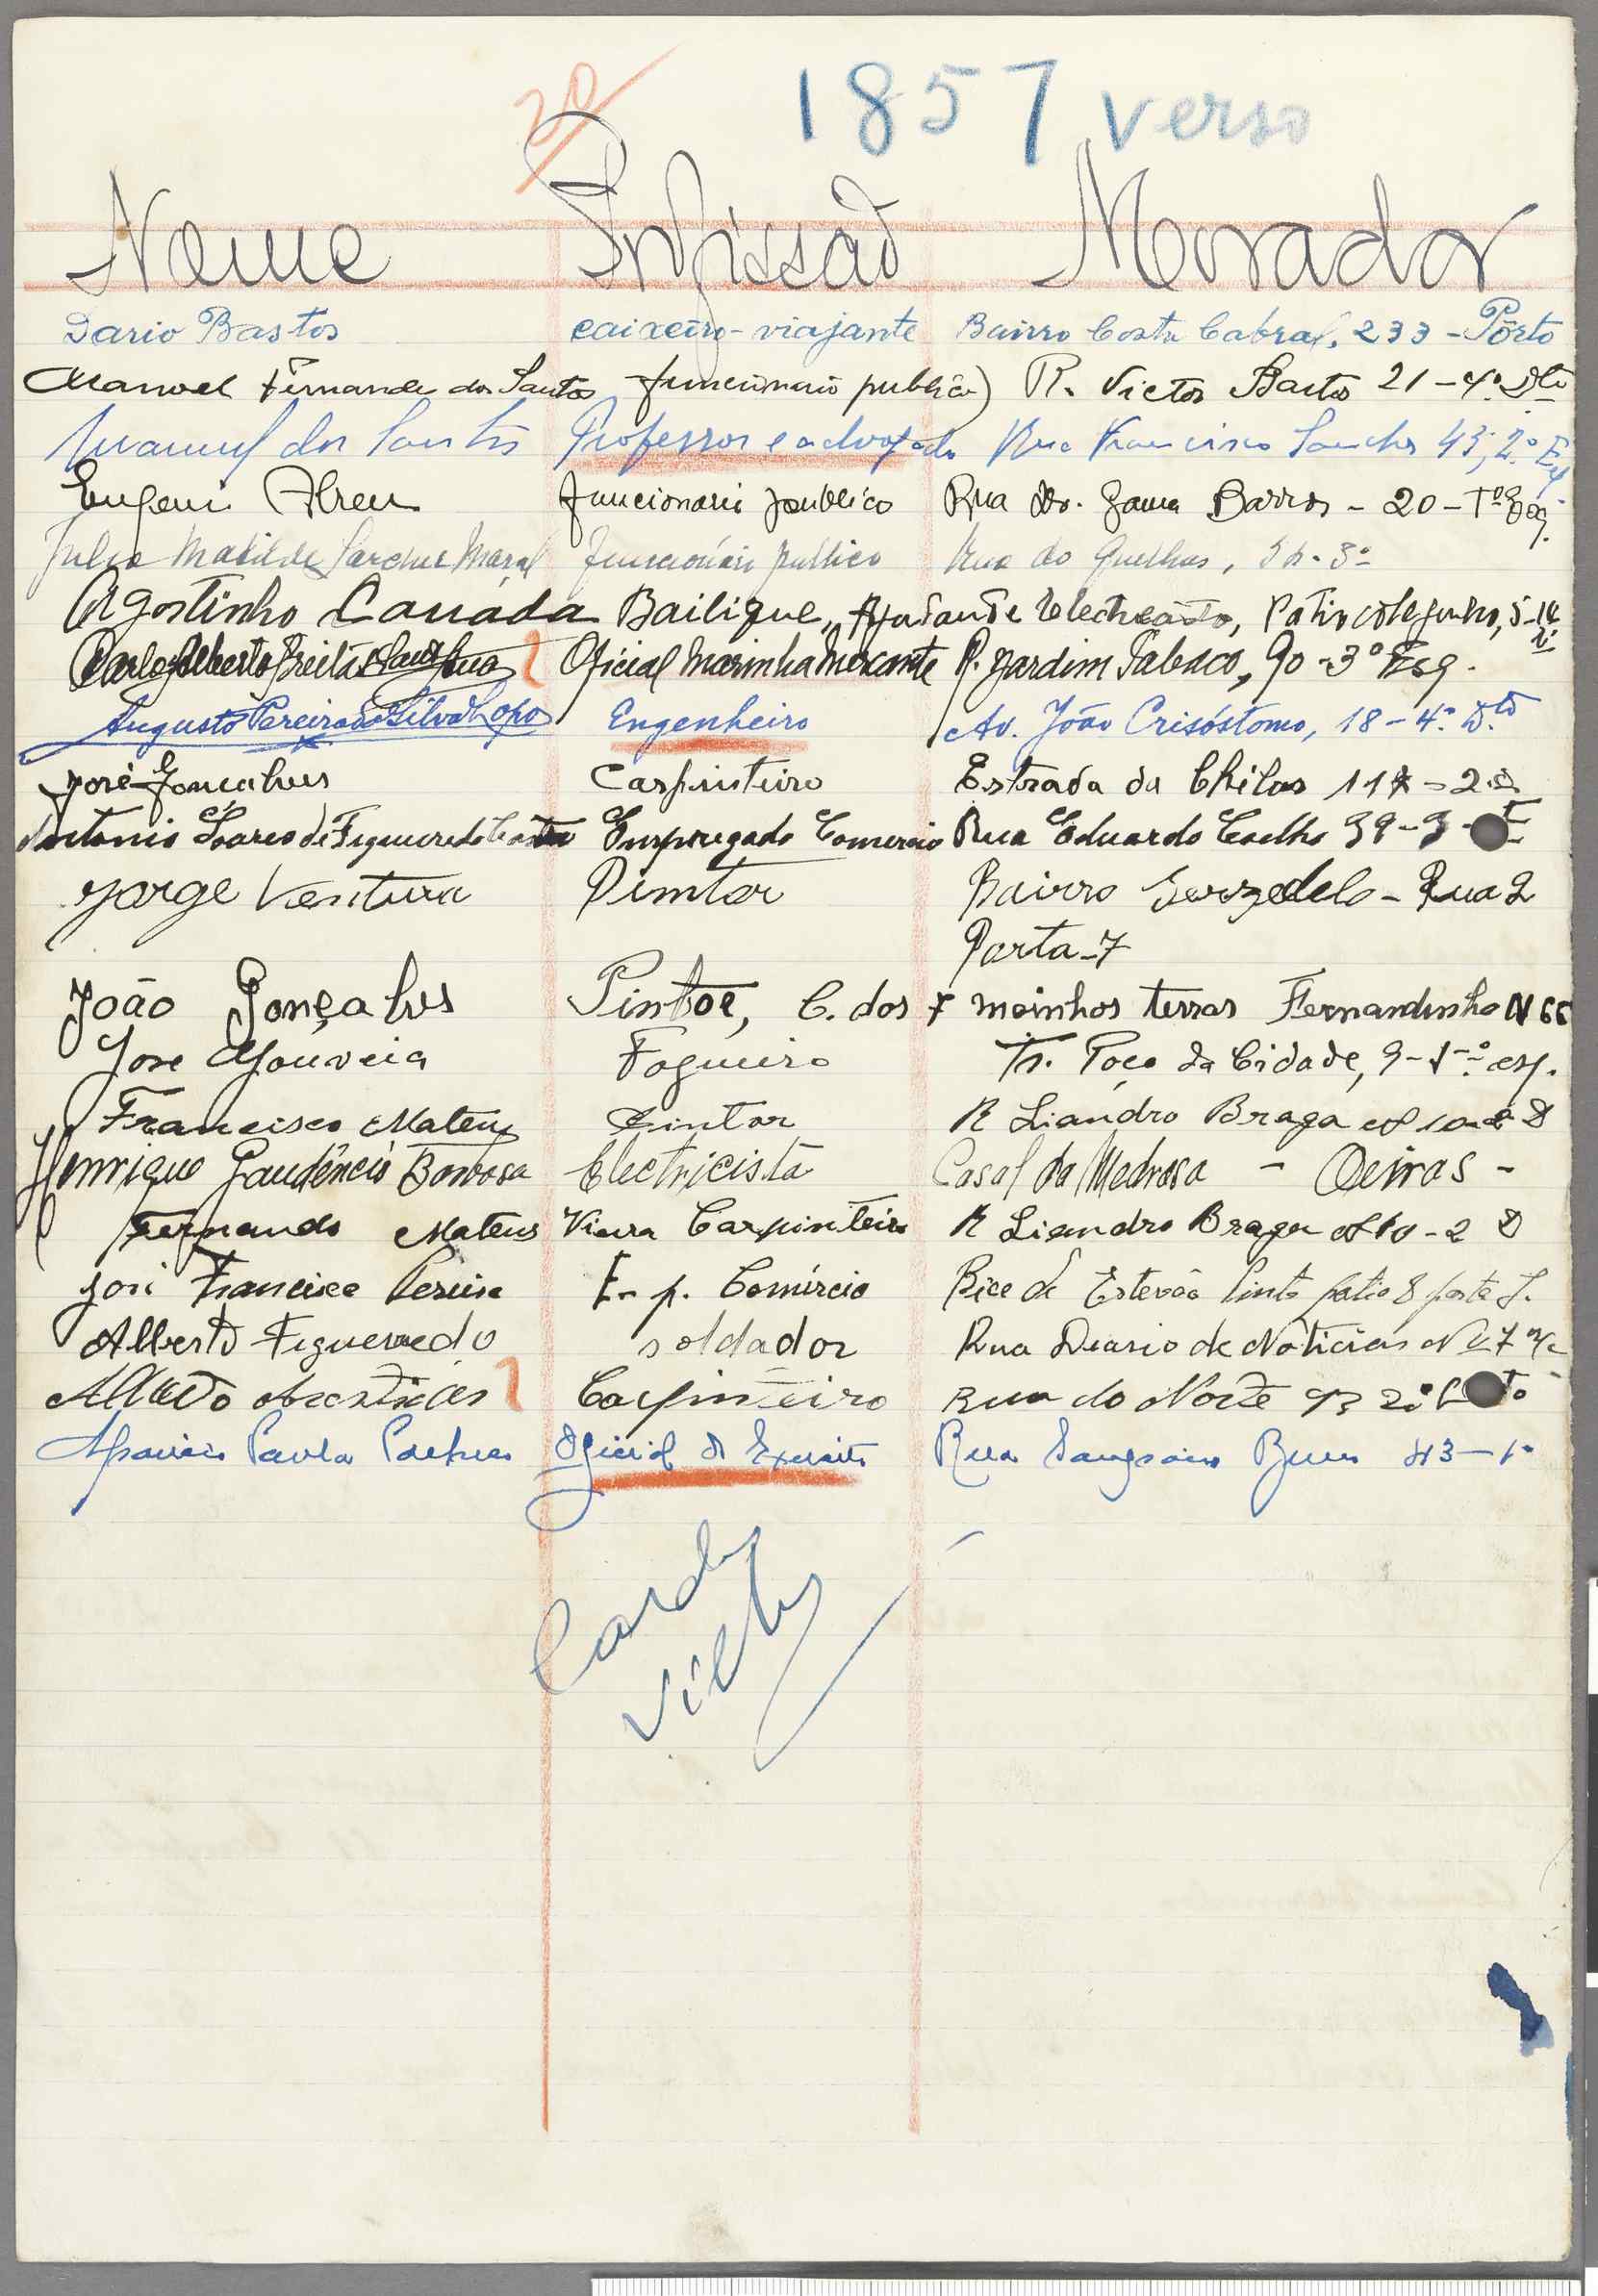 20
1857 verso
Nome Profissão Morador
Dario Bastos caixeiro-viajante Bairro Costa Cabral, 233 - Pôrto
Manoel Fernandes dos Santos funcionario publico R. Victor Bastos 21-4º Dtº
Manuel dos Santos Professor e advogado Rua Francisco Sanches 43, 2.º Esq
Eugenio Abreu funcionario publico Rua Dr. Gama Barros - 20 - 1º Esq.
Julia Matilde funcionário publico Rua do Quelhas, 3º
Agostinho Canada Bailique, Ajudante
Carlos Alberto Freitas Oficial Marinha Mercante R. Jardim Tabaco, 90-3º Esq.
Augusto Pereira da Silva Lopo Engenheiro Av. João Crisóstomo, 18-4º Dtº
José Gonçalves Carpinteiro Estrada da Chelas 117-2º
Antonio Soares de Figueiredo Empregado Comercio Rua Eduardo Coelho 39-3
Jorge Ventura Pimtor Bairro - Rua 2
Porta-7
João Gonçalves Pintor, C. dos 7 moinhos terras Fernandinho N 66
Jose Gouveia Fogueiro Tr. Poço da Cidade, 9-1º esq.
Francisco Mateus Pintor R Liandro Braga Nº 10-2 D
Henrique Gaudêncio Barbosa Electricista Casal da Medrosa - Oeiras -
Fernando Mateus Vieira Carpinteiro R Liandro Braga Nº 10-2 D
José Francisco Pereira E-p. Comércio Estevão Pinto patio 8 porta
Alberto Figueiredo soldador Rua Diario de Noticias Nº
Carpinteiro Rua do Norte 93 2º
Paula Oficial do Exercito Rua Sampaio Bruno 43-1º